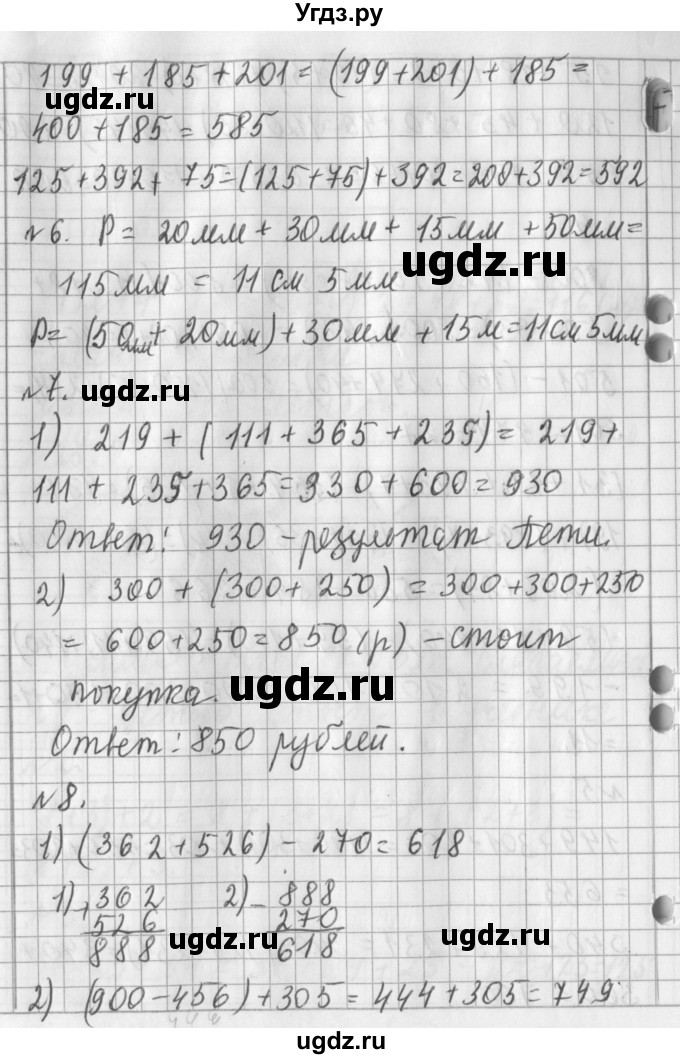 Угдз.ру
199 + 185 + 201 = (199 + 201) + 185 =
ugdz.ru
400 + 185 = 585
125 + 392 + 75 = (125 + 75) + 392 = 200 + 392 = 592
№6. P = 20мм + 30мм + 15мм + 50мм =
ugdz.ru
115мм = 11 см 5мм
P = (50мм + 20мм) + 30мм + 15м = 11см 5мм
№7. ugdz.ru
1) 219 + (111 + 365 + 235) = 219 +
111 + 235 + 365 = 330 + 600 = 930
Ответ: 930 - результат Пети.
2) 300 + (300 + 250) = 300 + 300 + 250
= 600 + 250 = 850 (р) - стоит
покупка. ugdz.ru
Ответ: 850 рублей.
№8.
1) (362 + 526) - 270 = 618
1) + 362 2) - 888
526 270
888 ugdz.ru 618 ugdz.ru
2) (900 - 456) + 305 = 444 + 305 = 749
ugdz.ru